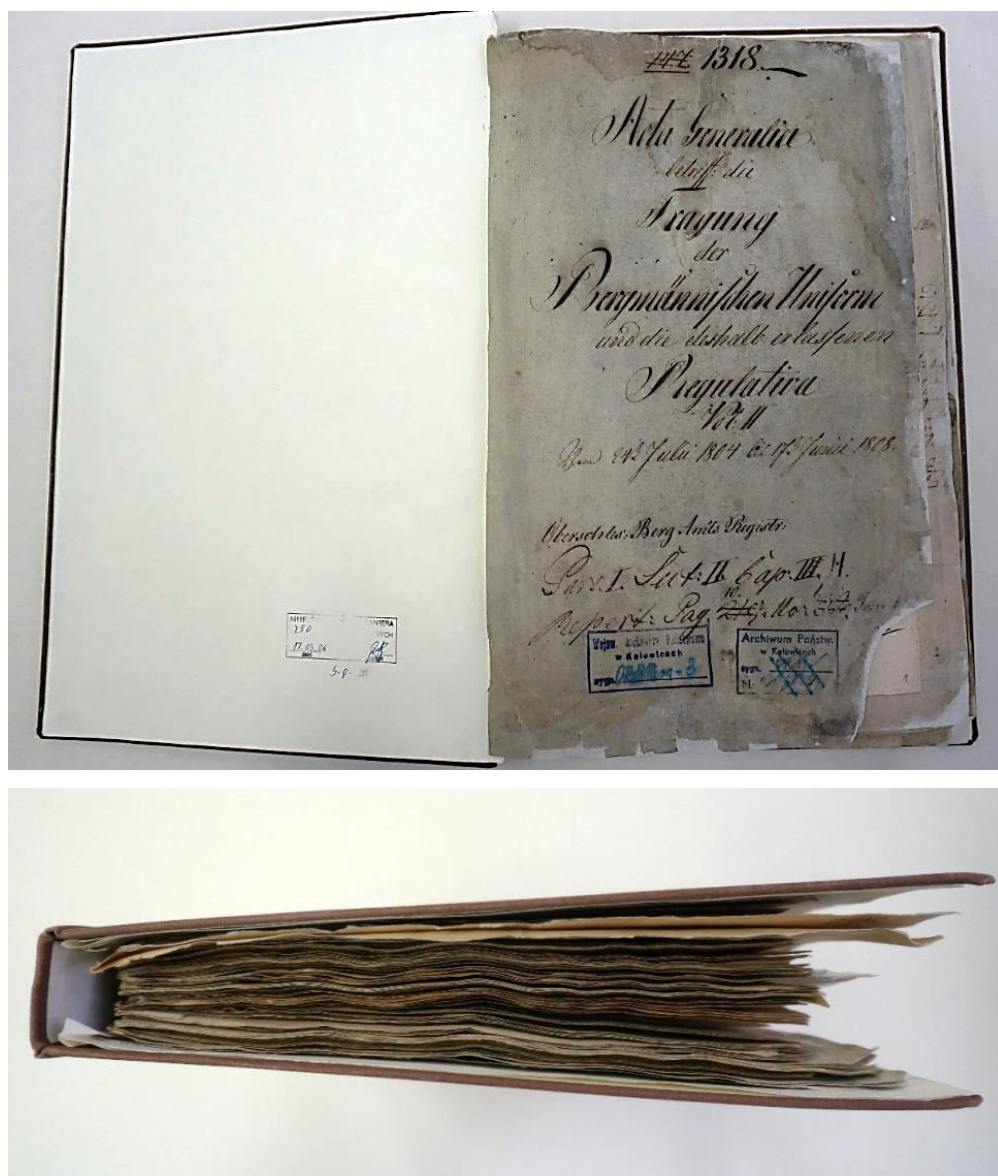 1318.
Acta Generalia
betreff: die
Tragung
der
Bergmännischen Uniform
und die deshalb erlassenen
Regulativa
Vol: II
24t Julii 1804 bis 17t Junii 1808.
Oberschles: Berg Amts Registr:
Pars. I. Sect: II. Cap: III. H.
Repert: Pag No:
w Katowicach
sygn.
Archiwum Państw.
w Katowicach
sygn.
N.
250
1